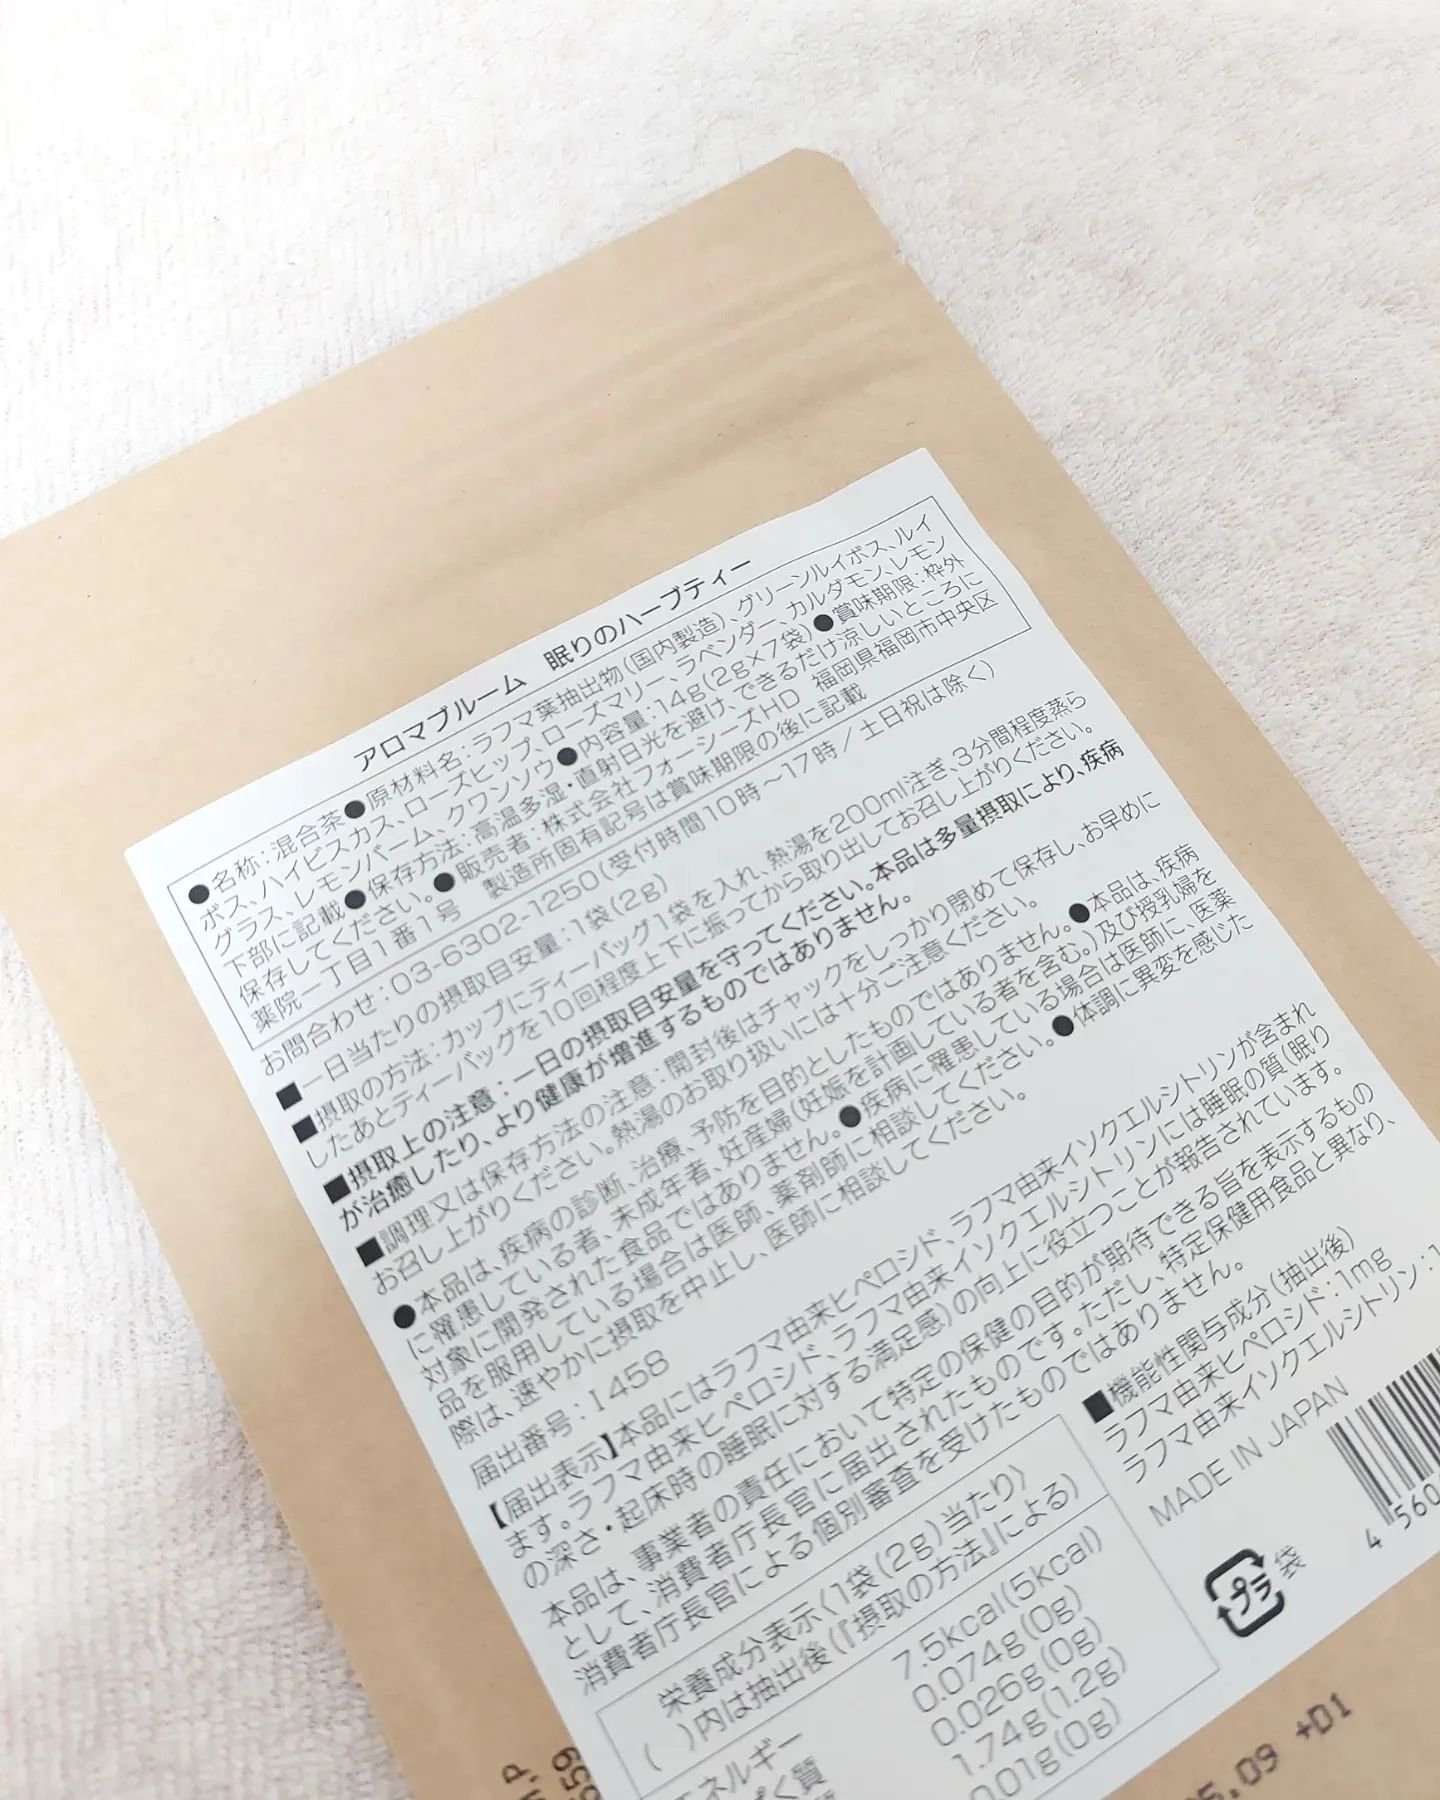 アロマブルーム 眠りのハーブティー
●名称:混合茶●原材料名:ラフマ葉抽出物(国内製造)、グリーンルイボス、ルイ
ボス、ハイビスカス、ローズヒップ、ローズマリー、ラベンダー、カルダモン、レモン
グラス、レモンバーム、クワンソウ●内容量:14g(2g×7袋)●賞味期限:枠外
下部に記載●保存方法:高温多湿・直射日光を避け、できるだけ涼しいところに
保存してください。●販売者:株式会社フォーシーズHD 福岡県福岡市中央区
薬院一丁目1番1号 製造所固有記号は賞味期限の後に記載
お問合わせ:03-6302-1250(受付時間10時~17時/土日祝は除く)
■一日当たりの摂取目安量:1袋(2g)
■摂取の方法:カップにティーバッグ1袋を入れ、熱湯を200ml注ぎ、3分間程度蒸ら
したあとティーバッグを10回程度上下に振ってから取り出してお召し上がりください。
■摂取上の注意:一日の摂取目安量を守ってください。本品は多量摂取により、疾病
が治癒したり、より健康が増進するものではありません。
■調理又は保存方法の注意:開封後はチャックをしっかり閉めて保存し、お早めに
お召し上がりください。熱湯のお取り扱いには十分ご注意ください。
●本品は、疾病の診断、治療、予防を目的としたものではありません。●本品は、疾病
に罹患している者、未成年者、妊産婦(妊娠を計画している者を含む。)及び授乳婦を
対象に開発された食品ではありません。●疾病に罹患している場合は医師に、医薬
品を服用している場合は医師、薬剤師に相談してください。●体調に異変を感じた
際は、速やかに摂取を中止し、医師に相談してください。
届出番号:I458
【届出表示】本品にはラフマ由来ヒペロシド、ラフマ由来イソクエルシトリンが含まれ
ます。ラフマ由来ヒペロシド、ラフマ由来イソクエルシトリンには睡眠の質(眠り
の深さ・起床時の睡眠に対する満足感)の向上に役立つことが報告されています。
本品は、事業者の責任において特定の保健の目的が期待できる旨を表示するもの
として、消費者庁長官に届出されたものです。ただし、特定保健用食品と異なり、
消費者庁長官による個別審査を受けたものではありません。
栄養成分表示〈1袋(2g)当たり〉
( )内は抽出後(『摂取の方法』による)
エネルギー 7.5kcal(5kcal)
0.074g(0g)
0.026g(0g)
1.74g(1.2g)
0.01g(0g)
■機能性関与成分(抽出後)
ラフマ由来ヒペロシド:1mg
ラフマ由来イソクエルシトリン:1
MADE IN JAPAN
4 560
プラ
袋
.09 +D1